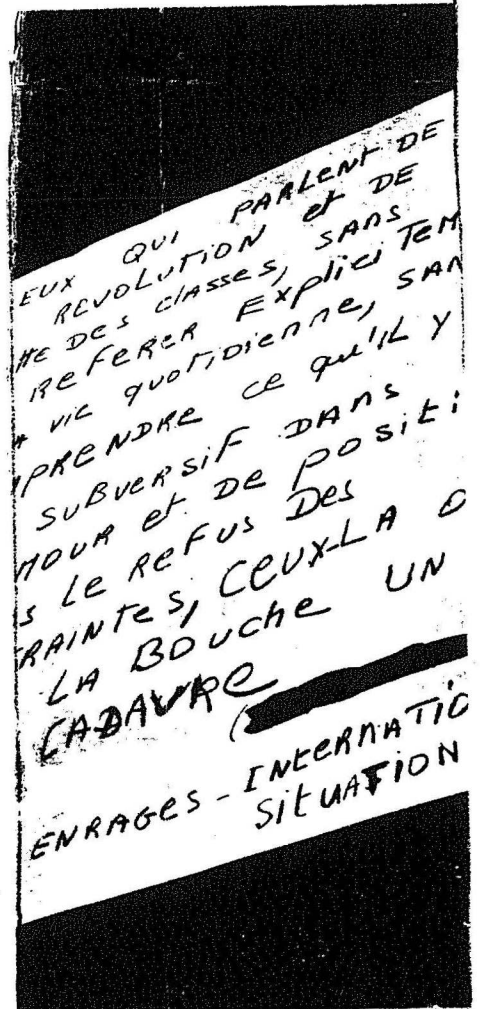 EUX QUI PARLENT DE
REVOLUTION et DE
TTE DES CLASSES, SANS
REFERER EXPLICITEM
A VIE QUOTIDIENNE, SAN
MPRENDRE ce qu'IL Y
SUBVERSIF DANS
MOUR et DE POSITI
S Le REFUS DES
RAINTES, CEUX-LA O
LA BOUCHE UN
CADAVRE
ENRAGES - INTERNATIO
SITUATION